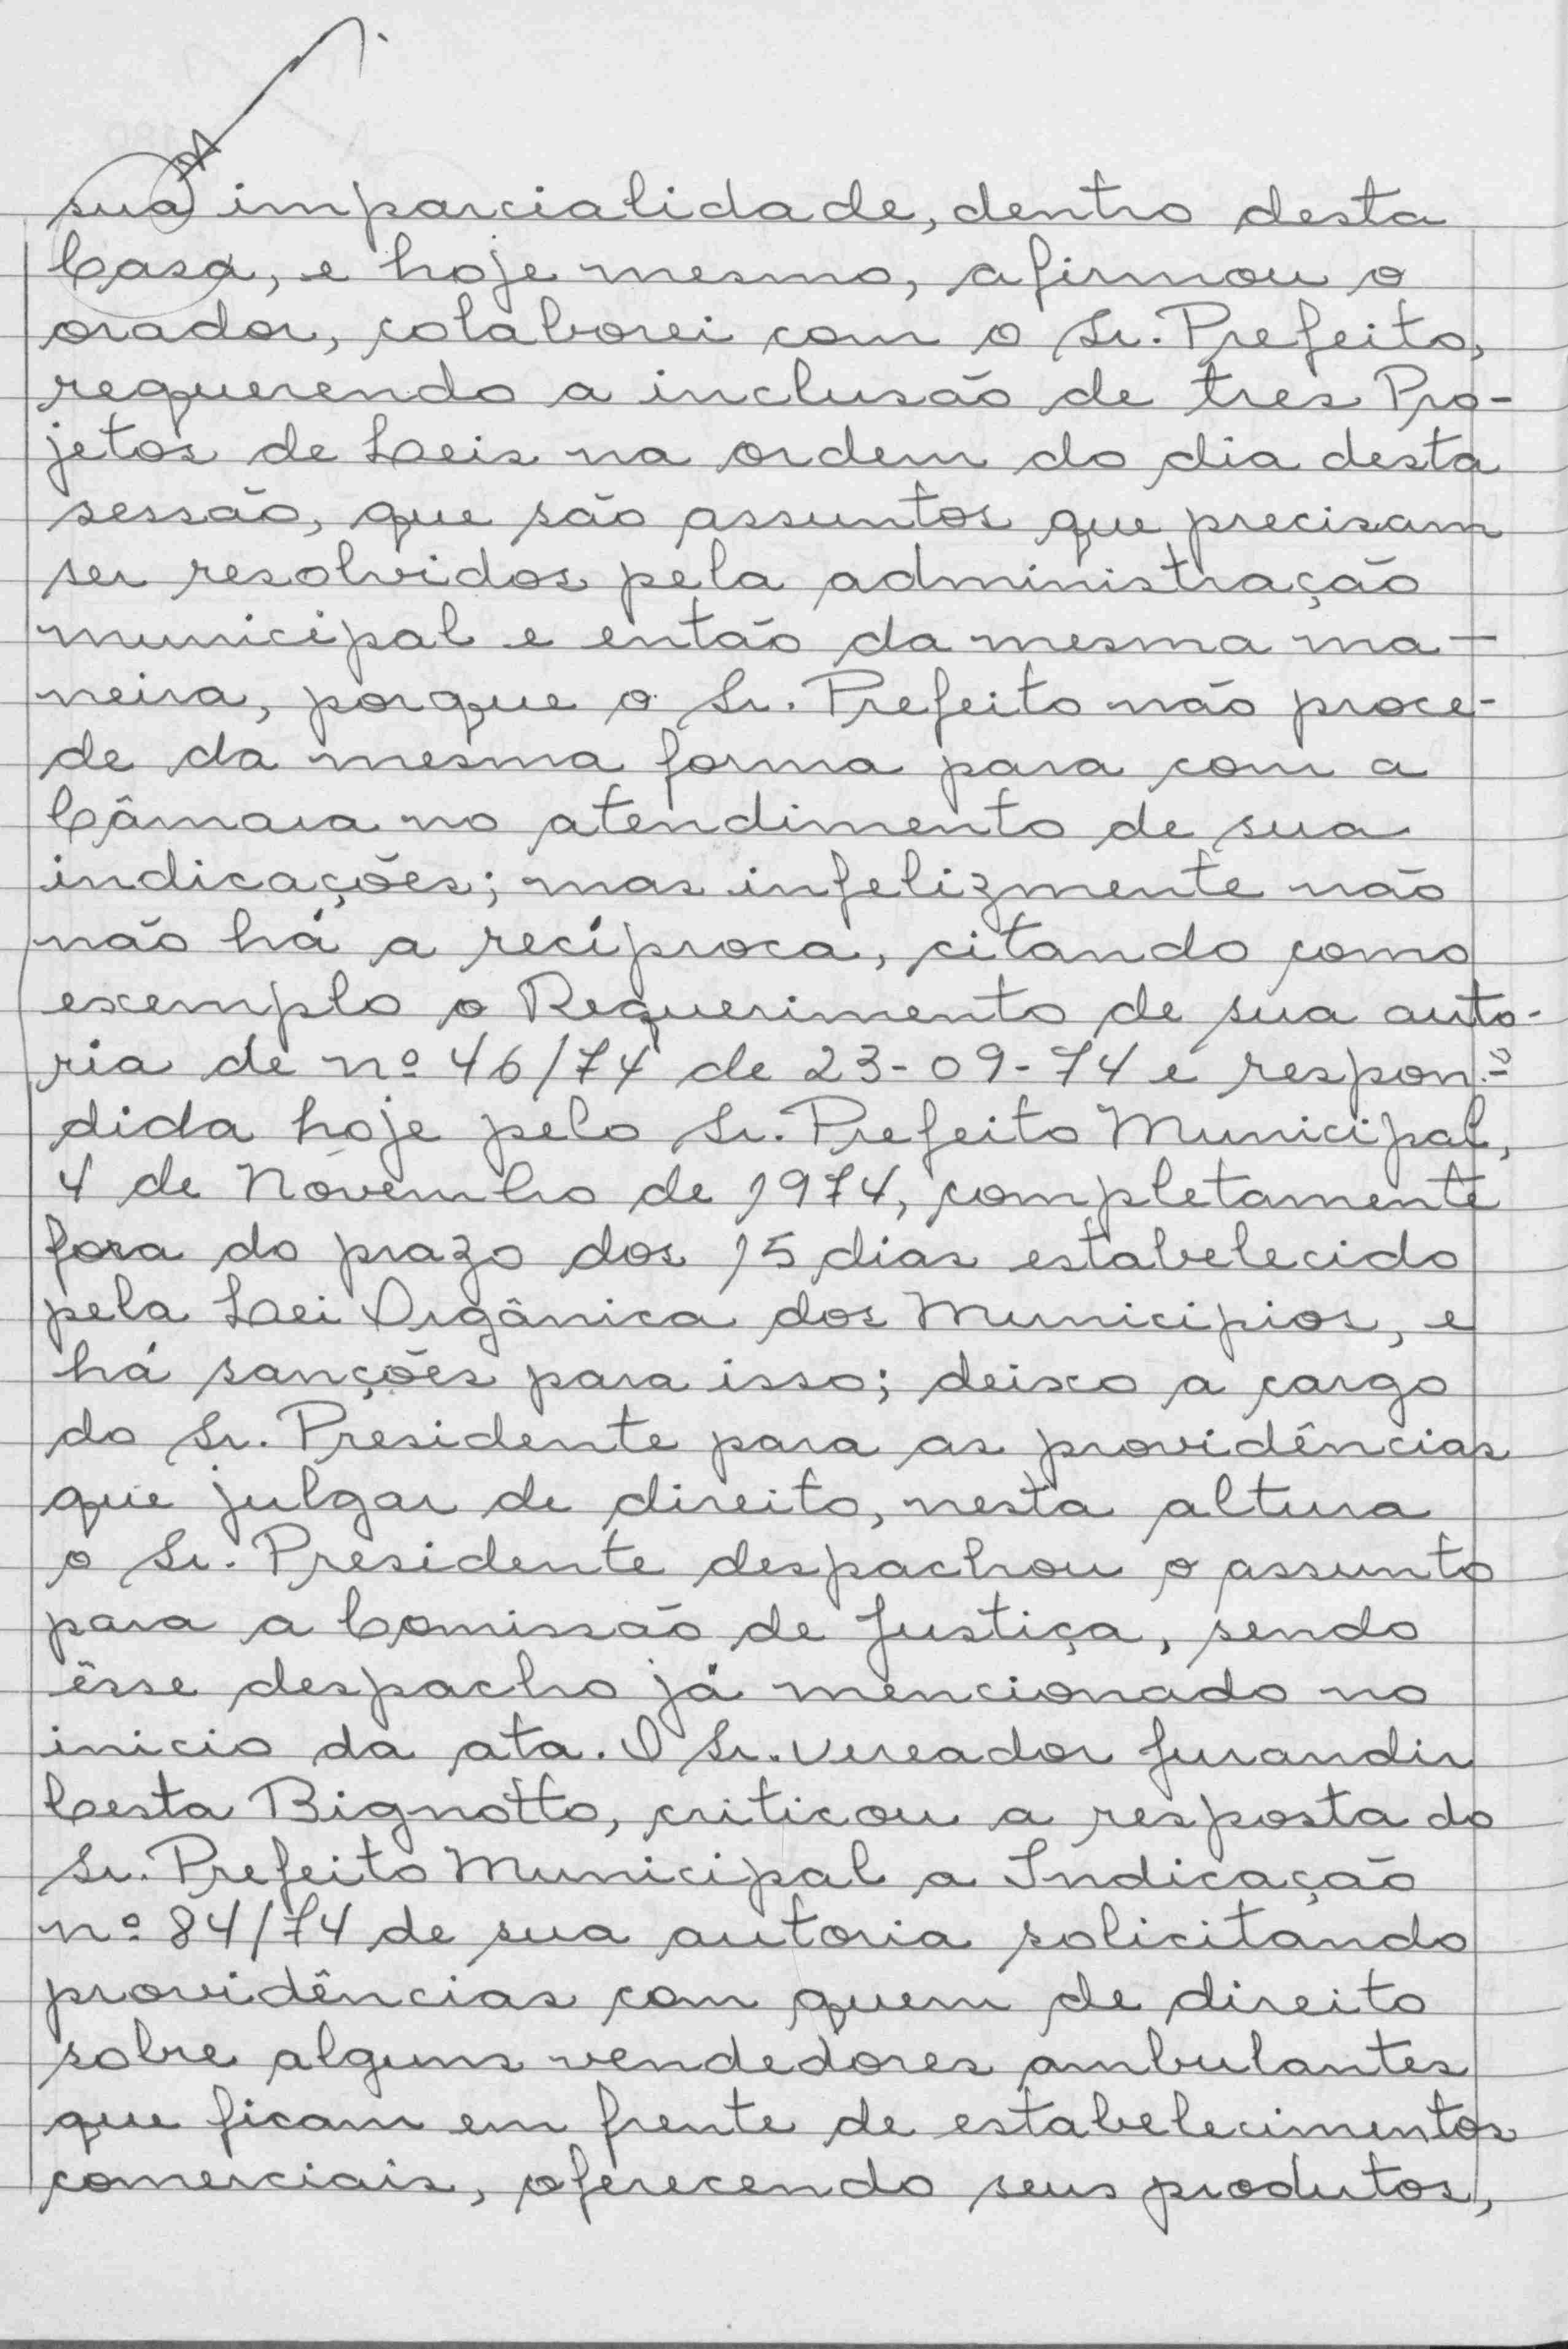 sua imparcialidade, dentro desta
Casa, e hoje mesmo, afirmou o
orador, colaborei com o Sr. Prefeito,
requerendo a inclusão de tres Pro-
jetos de Leis na ordem do dia desta
sessão, que são assuntos que precisam
ser resolvidos pela administração
municipal e então da mesma ma-
neira, porque o Sr. Prefeito não proce-
de da mesma forma para com a
Câmara no atendimento de sua
indicações; mas infelizmente não
não há a recíproca, citando como
exemplo o Requerimento de sua auto-
ria de nº 46/74 de 23-09-74 e respon-
dida hoje pelo Sr. Prefeito Municipal,
4 de Novembro de 1974, completamente
fora do prazo dos 15 dias estabelecido
pela Lei Orgânica dos Municipios, e
há sanções para isso; deixo a cargo
do Sr. Presidente para as providências
que julgar de direito, nesta altura
o Sr. Presidente despachou o assunto
para a Comissão de Justiça, sendo
êsse despacho já mencionado no
inicio da ata. O Sr. Vereador Jurandir
Cesta Bignotto, criticou a resposta do
Sr. Prefeito Municipal a Indicação
nº 84/74 de sua autoria solicitando
providências com quem de direito
sobre alguns vendedores ambulantes
que ficam em frente de estabelecimentos
comerciais, oferecendo seus produtos,